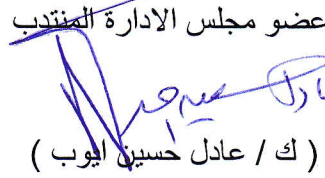 عضو مجلس الادارة المنتدب
( ك / عادل حسين ايوب )